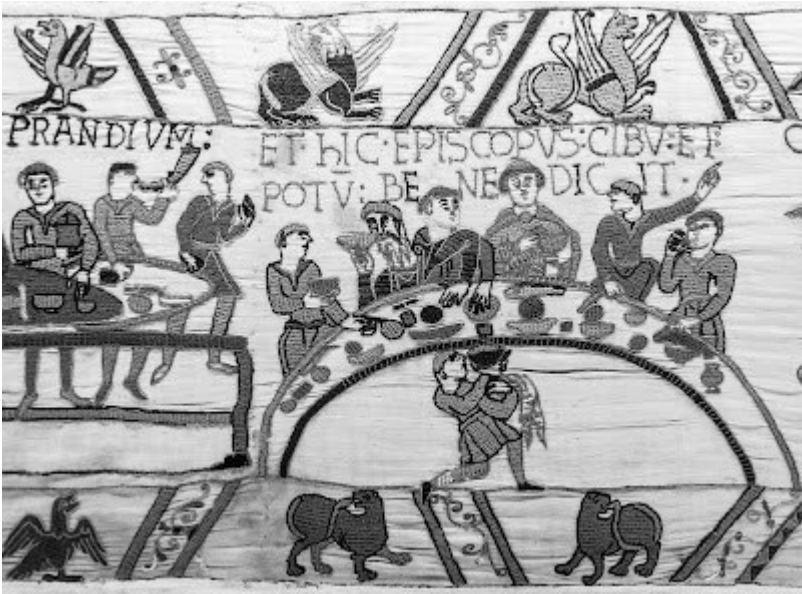 PRANDIVM:
ET hIC·EPISCOPVS:CIBV̄:ET:
POTV̄: BE NE DIC IT·